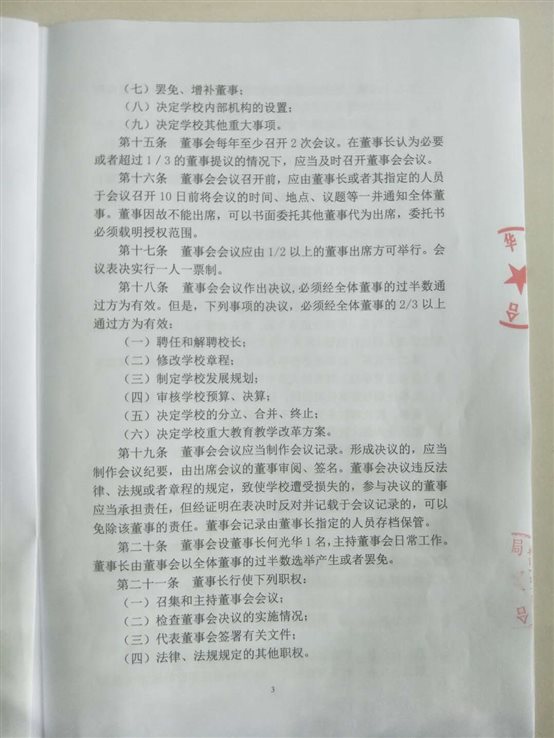 （七）罢免、增补董事；
（八）决定学校内部机构的设置；
（九）决定学校其他重大事项。
第十五条 董事会每年至少召开2次会议。在董事长认为必要
或者超过1/3的董事提议的情况下，应当及时召开董事会会议。
第十六条 董事会会议召开前，应由董事长或者其指定的人员
于会议召开10日前将会议的时间、地点、议题等一并通知全体董
事。董事因故不能出席，可以书面委托其他董事代为出席，委托书
必须载明授权范围。
第十七条 董事会会议应由1/2以上的董事出席方可举行。会
议表决实行一人一票制。
第十八条 董事会会议作出决议,必须经全体董事的过半数通
过方为有效。但是，下列事项的决议，必须经全体董事的2/3以上
通过方为有效：
（一）聘任和解聘校长；
（二）修改学校章程；
（三）制定学校发展规划；
（四）审核学校预算、决算；
（五）决定学校的分立、合并、终止；
（六）决定学校重大教育教学改革方案。
第十九条 董事会会议应当制作会议记录。形成决议的，应当
制作会议纪要，由出席会议的董事审阅、签名。董事会决议违反法
律、法规或者章程的规定，致使学校遭受损失的，参与决议的董事
应当承担责任，但经证明在表决时反对并记载于会议记录的，可以
免除该董事的责任。董事会记录由董事长指定的人员存档保管。
第二十条 董事会设董事长何光华1名,主持董事会日常工作。
董事长由董事会以全体董事的过半数选举产生或者罢免。
第二十一条 董事长行使下列职权：
（一）召集和主持董事会会议；
（二）检查董事会决议的实施情况；
（三）代表董事会签署有关文件；
（四）法律、法规规定的其他职权。
3
华
合
局
合